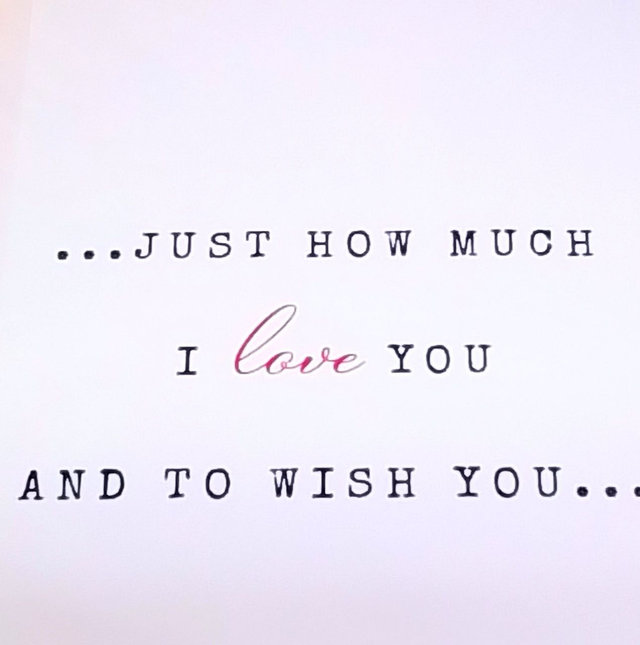 ...JUST HOW MUCH
I love YOU
AND TO WISH YOU...